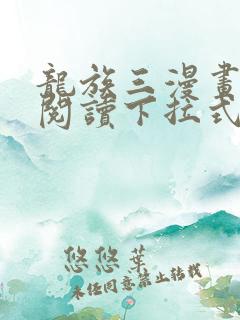 龍族三漫畫
閱讀下拉式
悠悠葉
未經同意禁止轉載